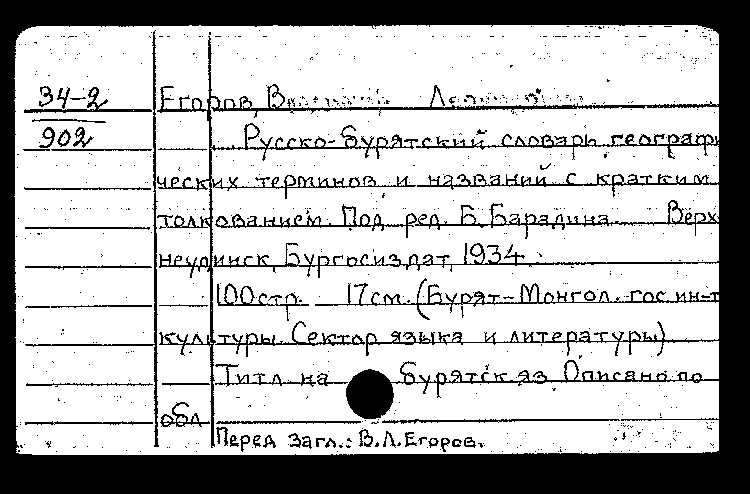 34-2 Егоров,
902 Русско-бурятский словарь географи
ческих терминов и названий с кратким
толкованием. Под ред. Б. Барадина. Верх
неудинск, Бургосиздат, 1934.
100стр. 17см. (Бурят-Монгол. гос. ин-т
культуры. Сектор языка и литературы)
Титл на бурятск яз. Описано по
обл
Перед загл.: В.Л.Егоров.